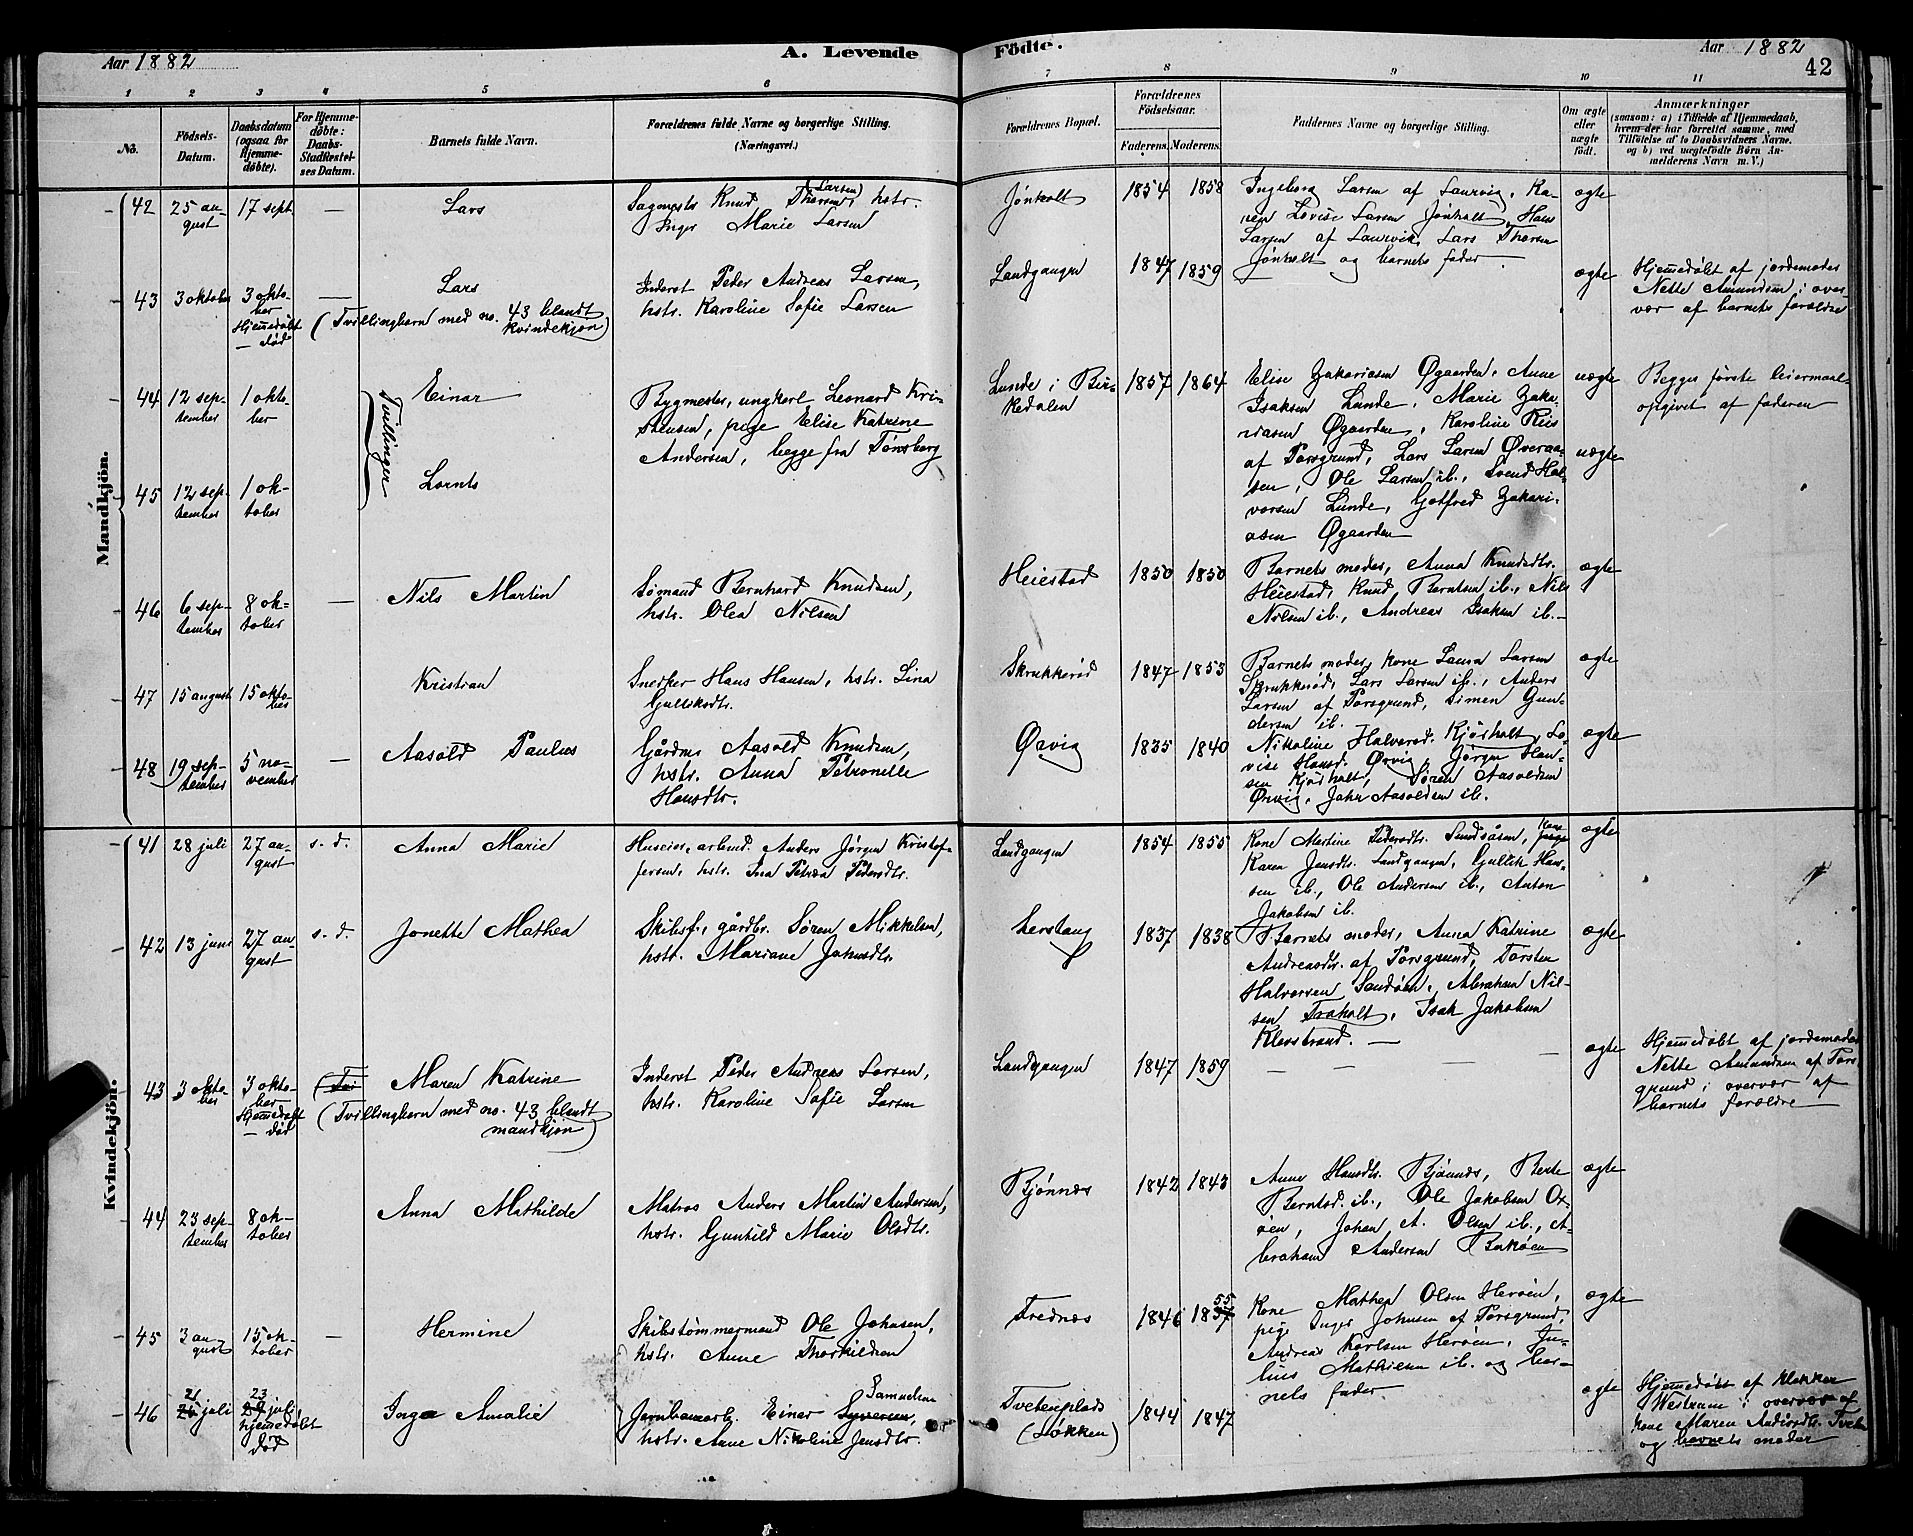 Aar 1882 A. Levende Födte. Aar 1882
42
1 2 3 4 5 6 7 8 9 10 11
No. Födsels-Datum. Daabsdatum (ogsaa for Hjemmedöbte). For Hjemmedöbte: Daabs-Stadfæstelses Datum. Barnets fulde Navn. Forældrenes fulde Navne og borgerlige Stilling. (Næringsvei.) Forældrenes Bopæl. Forældrenes Födselsaar. Faderens. Moderens. Faddernes Navne og borgerlige Stilling. Om ægte eller uægte födt. Anmærkninger (saasom: a) i Tilfælde af Hjemmedaab, hvem der har forrettet samme, med Tilföielse af to Daabsvidners Navne. og b) ved uægtefödte Börn Anmelderens Navn m. V.)
Mandkjön.
42 25 august 17 sept. — Lars
Sagmester Knud Thorsen (Larsen), hstr.
Inger Marie Larsen
Jønholt 1854 1858
Ingeborg Larsen af Laurvig, Ka-
ren Lovise Larsen Jønholt, Hans
Larsen af Laurvik, Lars Thorsen
Jønholt og barnets fader
ægte
43 3 oktober 3 oktober Hjemmedøbt — død — Lars
(Tvillingbarn med no. 43 blandt
kvindekjøn)
Inderst Peder Andreas Larsen,
hstr. Karoline Sofie Larsen
Landgangen 1847 1859
ægte
Hjemmedøbt af jordemoder
Nette Amundsen i over-
vær af barnets forældre
44 12 september 1 oktober Einar
Tvillinger
Bygmester, ungkarl Leonard Kri-
stensen, pige Elise Katrine
Andersen, begge fra Tønsberg
Lunde i Bir-
kedalen 1857 1864
Elise Zakariasen Øgaarden, Anne
Isaksen Lunde, Marie Zaka-
riasen Øgaarden, Karoline Riis
af Porsgrund, Lars Larsen Øveraa-
sen, Ole Larsen ib., Svend Hal-
vorsen Lunde, Gotfred Zakari-
asen Øgaarden
uægte
Begges første leiermaal
opgivet af faderen
45 12 september 1 oktober Lornts
uægte
46 6 september 8 oktober — Nils Martin
Sømand Bernhard Knudsen,
hstr. Olea Nilsen
Heiestad 1850 1850
Barnets moder, Anna Knudsdtr.
Heiestad, Knud Berntsen ib., Nils
Nilsen ib., Andreas Isaksen ib. —
ægte
47 15 august 15 oktober Kristian
Snedker Hans Hansen, hstr. Lina
Gulliksdtr.
Skrukkerød 1847 1853
Barnets moder, kone Laura Larsen
Skrukkerød, Lars Larsen ib., Anders
Larsen af Porsgrund, Simen Gun-
dersen ib.
ægte
48 19 september 5 november — Aasold Paulus
Gårdbr. Aasold Knudsen,
hstr. Anna Petronelle
Hansdtr.
Ørvig 1835 1840
Nikoline Halvorsd. Kjørholt, Lo-
vise Hansd. Ørvig, Jørgen Han-
sen Kjørholt, Søren Aasoldsen
Ørvig, Jahr Aasoldsen ib.
ægte
Kvindekjön.
41 28 juli 27 august s. d. Anna Marie
Huseier, arbmd. Anders Jørgen Kristof-
fersen, hstr. Ina Petrea Pedersdtr.
Landgangen 1854 1855
Kone Martine Pedersdtr. Sundsåsen,
Karen Jensdtr. Landgangen, Gullik Han-
sen ib., Ole Andersen ib., Anton
Jakobsen ib.
ægte
42 13 juni 27 august s. d. Jonette Mathea
Skibsf., gårdbr. Søren Mikkelsen,
hstr. Mariane Johnsdtr.
Lerstang 1837 1838
Barnets moder, Anna Katrine
Andreasdtr. af Porsgrund, Torsten
Halvorsen Sandøen, Abraham Nil-
sen Traholt, Isak Jakobsen
Klevstrand. —
ægte
43 3 oktober 3 oktober Hjemmedøbt — død (Tvi Maren Katrine
(Tvillingbarn med no. 43 blandt
mandkjøn)
Inderst Peder Andreas Larsen,
hstr. Karoline Sofie Larsen
Landgangen 1847 1859 — — — —
ægte
Hjemmedøbt af jordemoder
Nette Amundsen af Pors-
grund i overvær af
barnets forældre
44 23 september 8 oktober Anna Mathilde
Matros Anders Martin Andersen,
hstr. Gunhild Marie Olsdtr.
Bjønnes 1842 1843
Anne Hansdtr. Bjønnes, Berte
Berntsd. ib., Ole Jakobsen Ox-
øen, Johan A. Olsen ib., A-
braham Andersen Birkøen
ægte
45 3 august 15 oktober — Hermine
Skibstømmermand Ole Johnsen,
hstr. Anne Thorkildsen
Trednæs 1846 1857 55
Kone Mathea Olsen Herøen,
pige Inger Johnsen af Porsgrund,
Andreas Karlsen Herøen, Ju-
lius Mathisen ib. og bar-
nets fader.
ægte
46 21 juli 23 juli hjemmedøbt død Inga Amalie
Jernbanearb. Einer Syversen, Samuelsen
hstr. Anne Nikoline Jensdtr.
Tvetenplads
(Løkken) 1844 1847
ægte
Hjemmedøbt af klokker
Westrum i overvær af
kone Maren Andersdtr. Tveten
og barnets moder